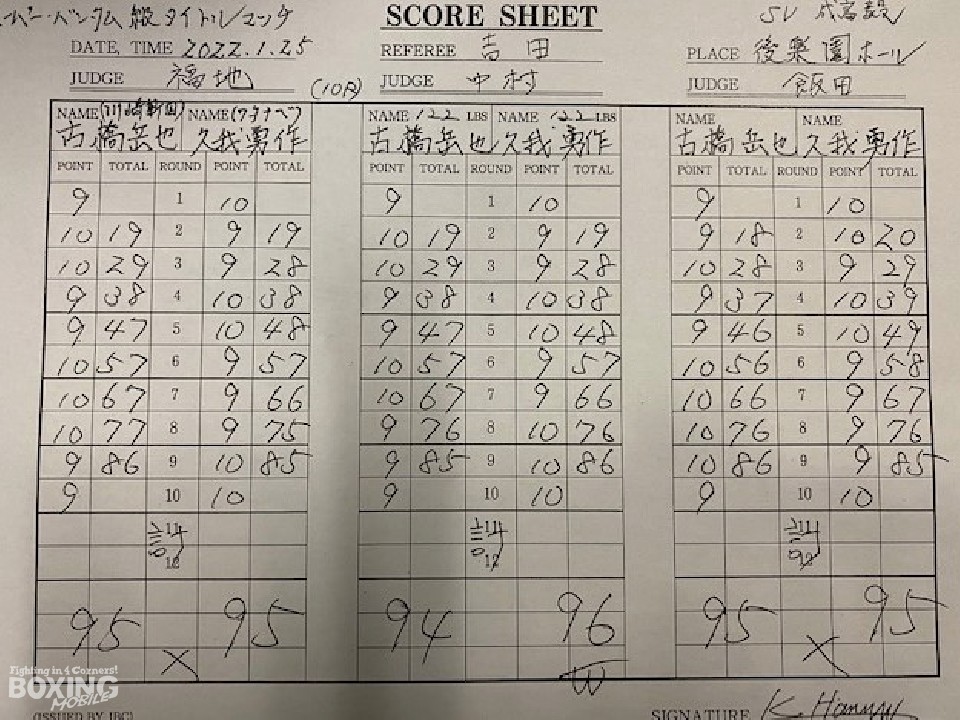 ーパー・バンタム級タイトルマッチ SCORE SHEET SV
DATE, TIME 2022.1.25 REFEREE 吉田 PLACE 後楽園ホール
JUDGE 福地 (10R) JUDGE 中村 JUDGE 飯田
NAME (川崎新田) NAME (ワタナベ) NAME 122 LBS NAME 122 LBS NAME NAME
古橋岳也 久我勇作 古橋岳也 久我勇作 古橋岳也 久我勇作
POINT TOTAL ROUND POINT TOTAL POINT TOTAL ROUND POINT TOTAL POINT TOTAL ROUND POINT TOTAL
9 1 10 9 1 10 9 1 10
10 19 2 9 19 10 19 2 9 19 9 18 2 10 20
10 29 3 9 28 10 29 3 9 28 10 28 3 9 29
9 38 4 10 38 9 38 4 10 38 9 37 4 10 39
9 47 5 10 48 9 47 5 10 48 9 46 5 10 49
10 57 6 9 57 10 57 6 9 57 10 56 6 9 58
10 67 7 9 66 10 67 7 9 66 10 66 7 9 67
10 77 8 9 75 9 76 8 10 76 10 76 8 9 76
9 86 9 10 85 9 85 9 10 86 10 86 9 9 85
9 10 10 9 10 10 9 10 10
計 計 計
12 12 12
95 95 94 96 95 95
X W X
Fighting in 4 Corners!
BOXING
MOBILE
(ISSUED BY JBC) SIGNATURE